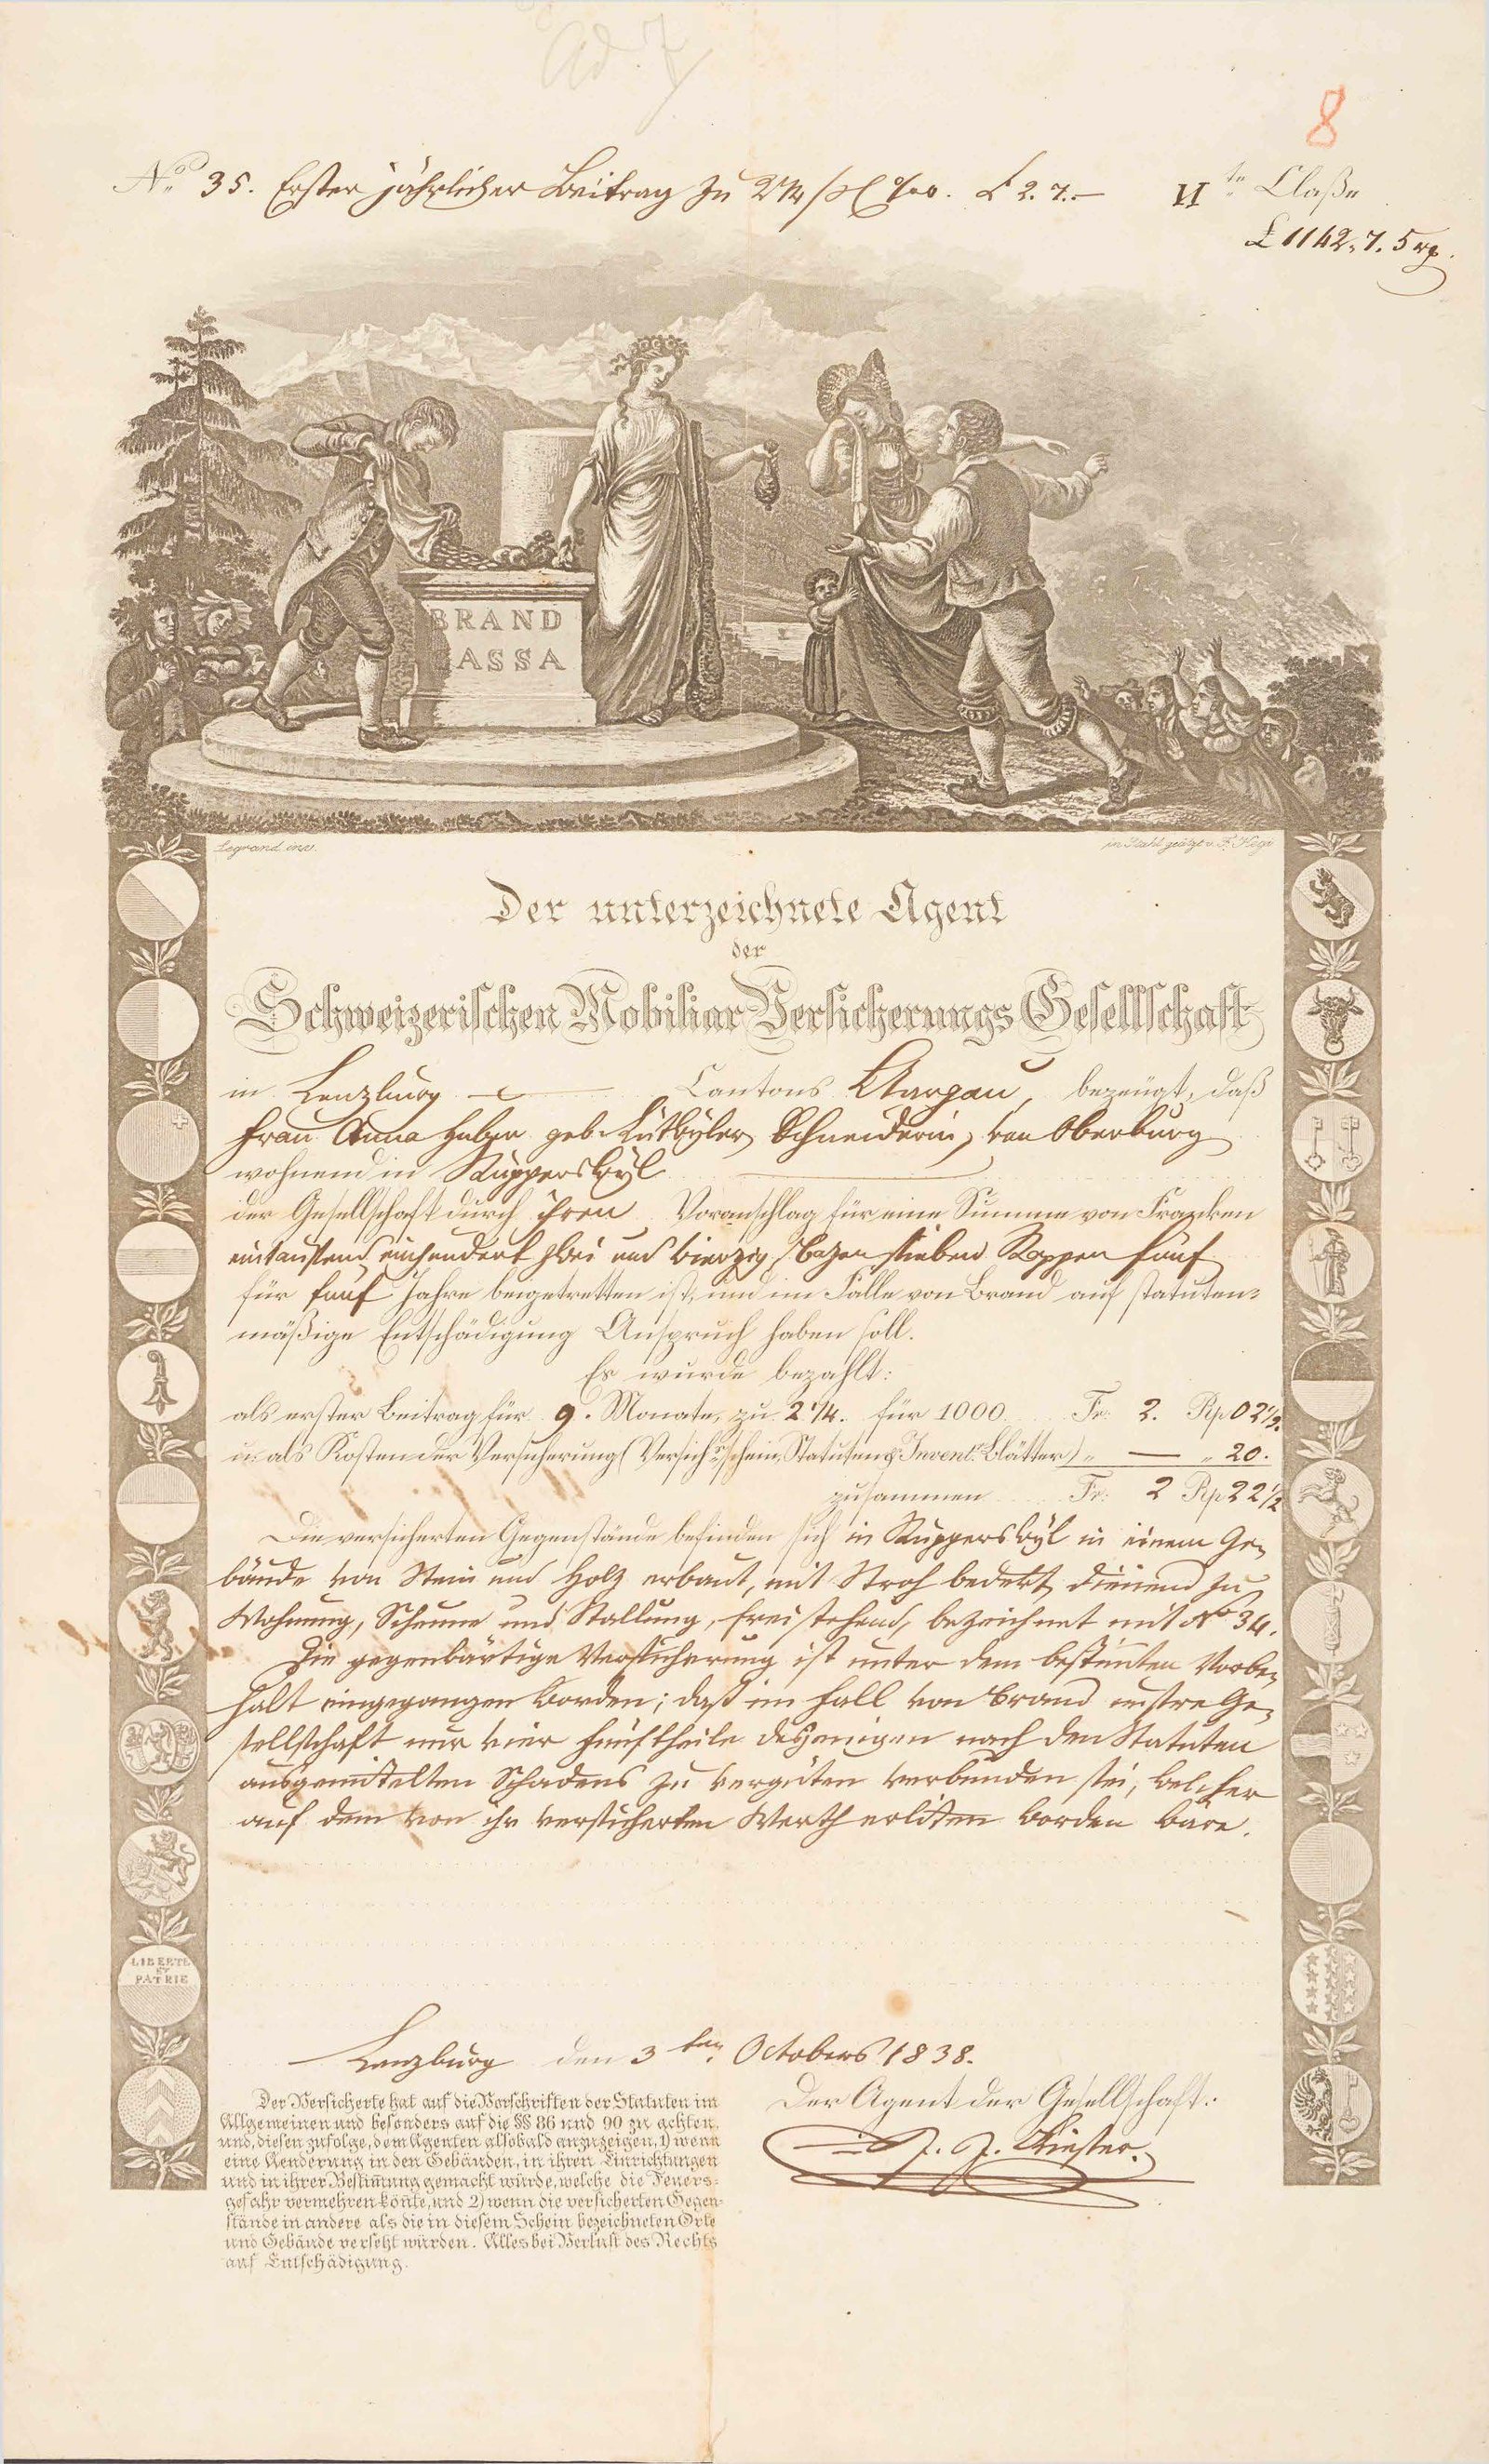 ad. 7
8
No. 35. Erster jährlicher Beitrag zu 2 1/4 ‰. £ 2. 7.–
VI te Claße
£ 1142. 7. 5 rp.
BRAND
CASSA
Legrand inv.
in Stahl geätzt v. F. Hegi
Der unterzeichnete Agent
der
Schweizerischen Mobiliar Versicherungs Gesellschaft
in Lenzburg Cantons Aargau, bezeugt, daß
Frau Anna geb. Schneiderin, von Oberburg
wohnend in Rupperswyl
der Gesellschaft durch ihren Voranschlag für eine Summe von Franken
eintausend einhundert zwei und vierzig, Bazen sieben Rappen fünf
für fünf Jahre beigetretten ist, und im Falle von Brand auf statuten=
mäßige Entschädigung Anspruch haben soll.
Es wurde bezahlt:
als erster Beitrag für 9. Monate, zu 2 1/4. für 1000 Fr. 2. Rp 02 1/2.
u. als Kosten der Versicherung (Versich.schein, Statuten & Invent. Blätter) „ — „ 20.
zusammen Fr. 2 Rp 22 1/2
Die versicherten Gegenstände befinden sich in Rupperswyl in einem Ge=
bäude von Stein und Holz erbaut, mit Stroh bedekt, dienend zu
Wohnung, Scheune und Stallung, freistehend, bezeichnet mit No 34.
Die gegenwärtige Versicherung ist unter dem bestimten Vorbe=
halt eingegangen worden; daß im Fall von Brand unsre Ge=
sellschaft nur vier Fünftheile desjenigen nach den Statuten
ausgemittelten Schadens zu vergüten verbunden sei, welcher
auf dem von ihr versicherten Werth erlitten worden wäre.
LIBERTE
ET
PATRIE
Lenzburg den 3ten Octobers 1838.
Der Agent der Gesellschaft:
Der Versicherte hat auf die Vorschriften der Statuten im
Allgemeinen und besonders auf die §§ 86 und 90 zu achten,
und, diesen zufolge, dem Agenten alsobald anzuzeigen, 1) wenn
eine Aenderung in den Gebäuden, in ihren Einrichtungen
und in ihrer Bestimung gemacht würde, welche die Feuers=
gefahr vermehren könte, und 2) wenn die versicherten Gegen=
stände in andere als die in diesem Schein bezeichneten Orte
und Gebäude versetzt würden. Alles bei Verlust des Rechts
auf Entschädigung.